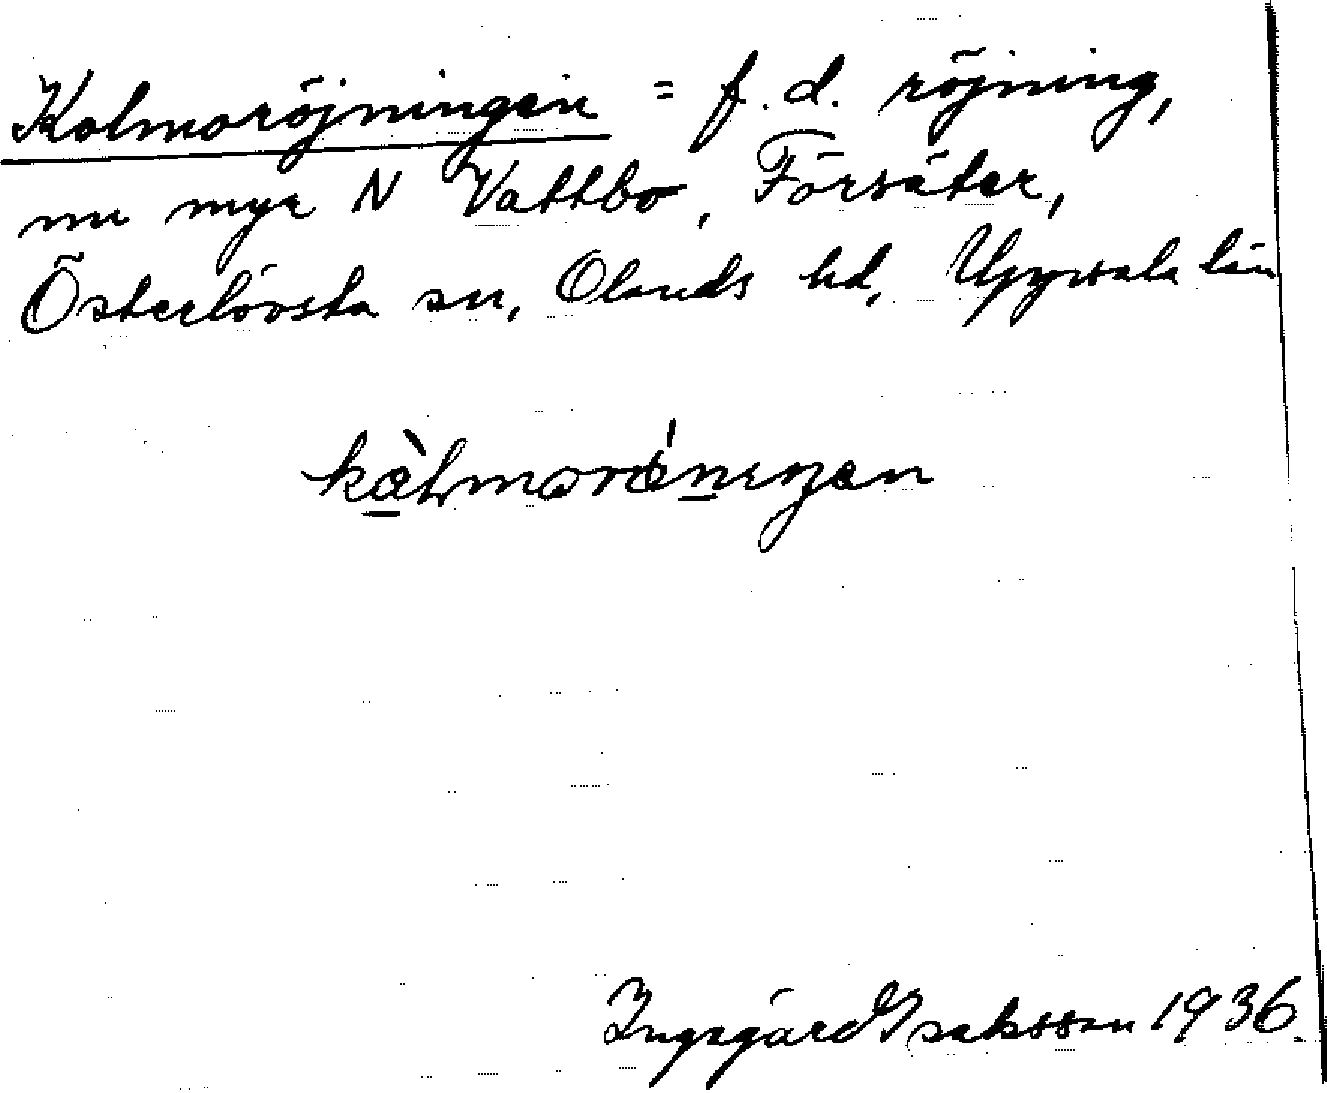 Kolmoröjningen = f.d. röjning,
nu myr N Vattbo, Försäter,
Österlövsta sn, Olands hd, Uppsala län
Ingegärd Isaksson 1936.